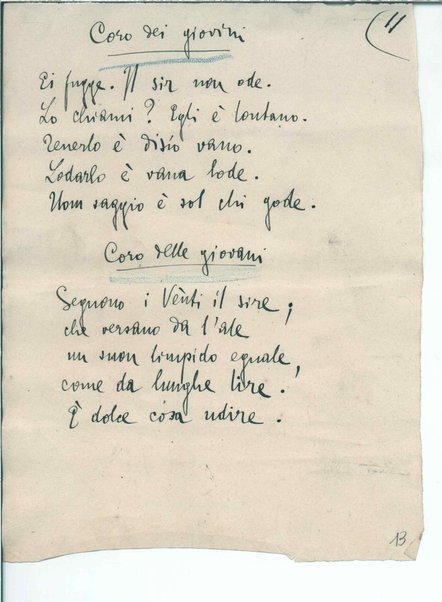 11
Coro dei giovini
Ei fugge. Il sir non ode.
Lo chiami? Egli è lontano.
Tenerlo è disìo vano.
Lodarlo è vana lode.
Uom saggio è sol chi gode.
Coro delle giovani
Seguono i Vènti il sire;
che versano da l'ale
un suon limpido eguale,
come da lunghe lire.
È dolce cosa udire.
13